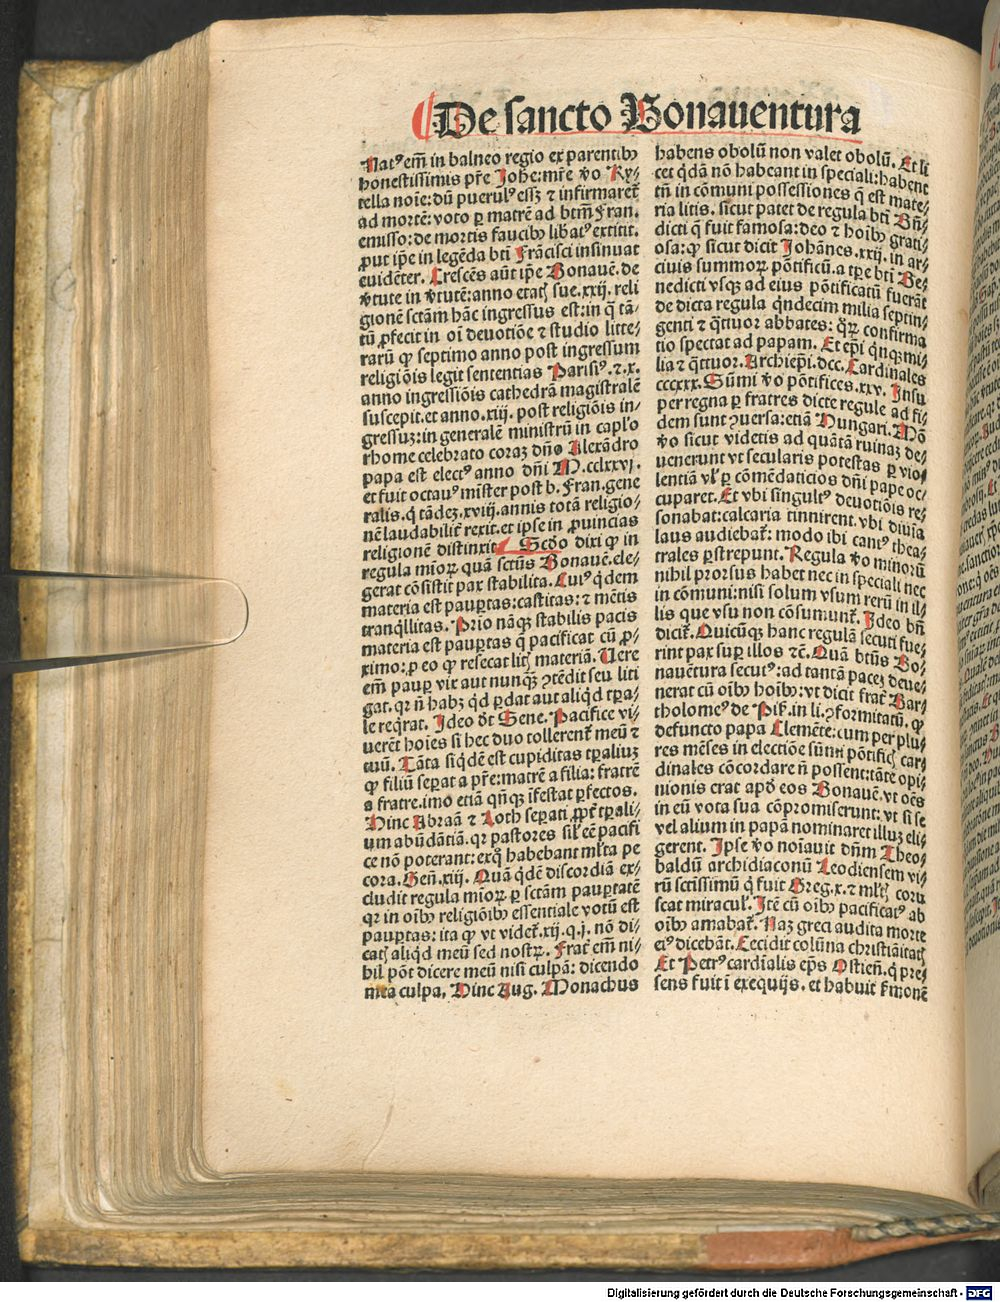 De sancto Bonauentura
Natꝰ em̄ in balneo regio ex parentibꝰ
honestissimis pr̄e Joh̄e: mr̄e ꝟo Ry⸗
tella noīe: dū puerulꝰ essꝫ ⁊ infirmaret̄
ad mortē: voto ꝑ matrē ad btm̄ Fran.
emisso: de mortis faucibꝰ libatꝰ extitit.
ꝓut ip̄e in legēda btī Frācisci insinuat
euidēter. Crescēs aūt ip̄e Bonauē. de
ꝟtute in ꝟtutē: anno etatꝭ sue. xxij. reli
gionē sctām hāc ingressus est: in q̄ tā⸗
tū ꝓfecit in oī deuotiōe ⁊ studio litte⸗
rarū ꝙ septimo anno post ingressum
religiōis legit sententias Parisiꝰ. ⁊ .x.
anno ingressiōis cathedrā magistralē
suscepit. et anno .xiij. post religiōis in⸗
gressuꝫ: in generalē ministrū in capl̓o
rhome celebrato coraꝫ dn̄o Alexādro
papa est electꝰ anno dn̄i M.cclxxvj.
et fuit octauꝰ mīster post b. Fran. gene
ralis. q̇ tādeꝫ .xviij. annis totā religio⸗
nē laudabilit̄ rexit. et ip̄se in ꝓuincias
religionē distinxit. Scd̓o dixi ꝙ in
regula mioꝝ quā sctūs Bonauē. ele⸗
gerat cōsistit pax stabilita. Cuiꝰ q̇dem
materia est pauꝑtas: castitas: ⁊ mētis
tranq̇llitas. Prīo nāqꝫ stabilis pacis
materia est pauꝑtas q̄ pacificat cū ꝓ⸗
ximo: ꝑ eo ꝙ resecat litꝭ materiā. Uere
em̄ pauꝑ vix aut nunqꝫ ꝯtēdit seu liti
gat. qr n̄ habꝫ qd̓ ꝑdat aut aliqd̓ tꝑa⸗
le reqrat. Ideo dt̄ Sene. Pacifice vi⸗
uerēt hoīes si hec duo tollerent̄ meū ⁊
tuū. Tāta siq̇dē est cupiditas tꝑaliuꝫ
ꝙ filiū seꝑat a pr̄e: matrē a filia: fratrē
a fratre. imo etiā qn̄qꝫ īfestat ꝑfectos.
Hinc Abraā ⁊ Loth seꝑati ꝓpt̄ tꝑali⸗
um abūdātiā. qr pastores sil̓ eēt pacifi
ce nō poterant: exq̊ habebant ml̓ta pe
cora. Geñ. xiij. Quā q̇dē discordiā ex⸗
cludit regula mīoꝝ ꝑ sctām pauꝑtatē
qr in oībꝰ religiōibꝰ essentiale votū est
pauꝑtas: ita ꝙ vt videt̄. xij. q. j. nō di⸗
catꝭ aliqd̓ meū sed nostꝝ. Frat̄ em̄ ni⸗
hil pōt dicere meū nisi culpā: dicendo
mea culpa. Hinc Aug. Monachus
habens obolū non valet obolū. Et li
cet q̇dā nō habeant in speciali: habent
tn̄ in cōmuni possessiones q̄ est mate⸗
ria litis. sicut patet de regula btī Bn̄⸗
dicti q̄ fuit famosa: deo ⁊ hoībꝰ grati⸗
osa: ꝙ sicut dicit Johānes. xxij. in ar⸗
ciuis summoꝝ pōtificū. a tꝑe btī Be⸗
nedicti vsqꝫ ad eius pōtificatū fuerāt
de dicta regula q̇ndecim milia septin⸗
genti ⁊ q̄ttuor abbates: q̊ꝝ confirma
tio spectat ad papam. Et epī q̇nqꝫ mi⸗
lia ⁊ q̄ttuor. Archiepī. dcc. Cardinales
ccccxxx. Sūmi ꝟo pōtifices .xxv. Insu
per regna ꝑ fratres dicte regule ad fi⸗
dem sunt ꝯuersa: etiā Hungari. Mō
ꝟo sicut videtis ad quātā ruinaꝫ de⸗
uenerunt vt secularis potestas ꝑ vio⸗
lentiā vl̓ ꝑ cōmēdaticios dn̄i pape oc⸗
cuparet. Et vbi singultꝰ deuotiōis re⸗
sonabat: calcaria tinnirent. vbi diuīa
laus audiebat̄: modo ibi cantꝰ thea⸗
trales ꝑstrepunt. Regula ꝟo minorū
nihil prorsus habet nec in speciali nec
in cōmuni: nisi solum vsum rerū in il⸗
lis que vsu non cōsumunt̄. Ideo bn̄
dicit̄. Quicūqꝫ hanc regulā secuti fue⸗
rint pax suꝑ illos ⁊c̄. Quā btūs Bo⸗
nauētura secutꝰ: ad tantā paceꝫ deue⸗
nerat cū oībꝰ hoībꝰ: vt dicit frat̄ Bar⸗
tholomeꝰ de Pis̄. in li. ꝯformitatū. ꝙ
defuncto papa Clemēte: cum per plu⸗
res mēses in electiōe sūmi pōtificꝭ car⸗
dinales cōcordare n̄ possent: tāte opi⸗
nionis erat apd̓ eos Bonauē. vt oēs
in eū vota sua cōpromiserunt: vt si se
vel alium in papā nominaret illuꝫ eli⸗
gerent. Ipse ꝟo noīauit dn̄m Theo⸗
baldū archidiaconū Leodiensem vi⸗
rū sctissimū q̇ fuit Greg. x. ⁊ ml̓tꝭ coru
scat miracul̓. Itē cū oībꝰ pacificatꝰ ab
oībꝰ amabat̄. Naꝫ greci audita morte
eiꝰ dicebāt. Cecidit colūna christiāitatꝭ
Et Petrꝰ cardīalis ep̄s Ostieñ. q̇ pre⸗
sens fuit ī exequijs. et habuit s̓monē
Digitalisierung gefördert durch die Deutsche Forschungsgemeinschaft - DFG